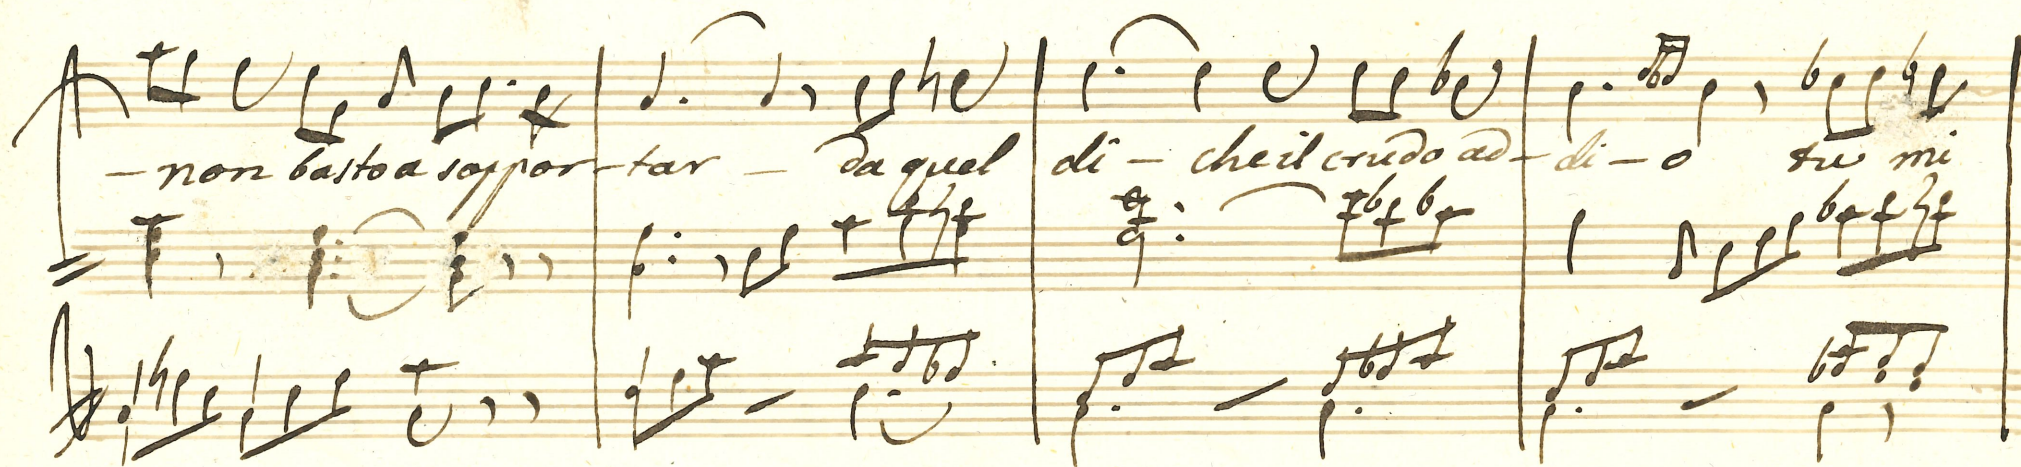 - non basto a soppor - tar - da quel di - che il crudo ad - di - o tu mi